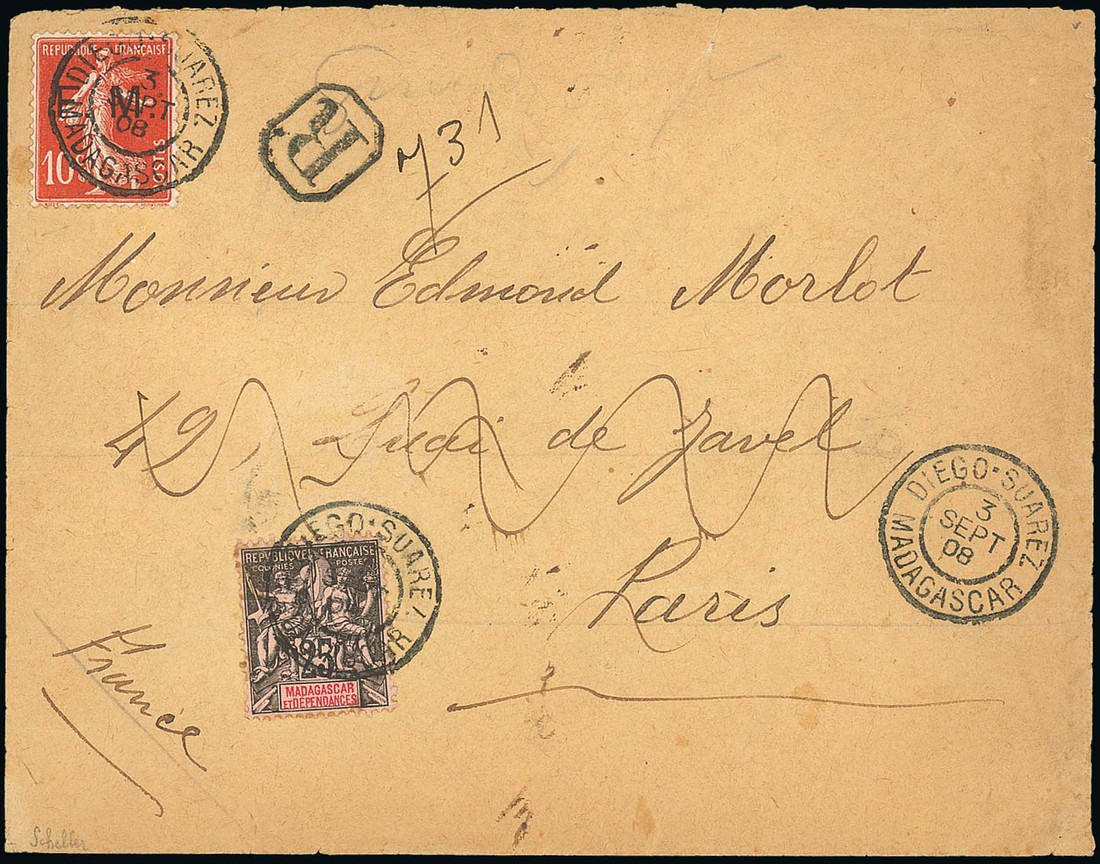 REPUBLIQUE FRANÇAISE
10
POSTES
F. M.
DIEGO-SUAREZ
3
SEPT
08
MADAGASCAR
R
731
Monsieur Edmond Morlot
42, Quai de Javel
Paris
France
DIEGO-SUAREZ
3
SEPT
08
MADAGASCAR
DIEGO-SUAREZ
REPVBLIQVE FRANÇAISE
COLONIES POSTE
25
MADAGASCAR
ET DÉPENDANCES
Scheller